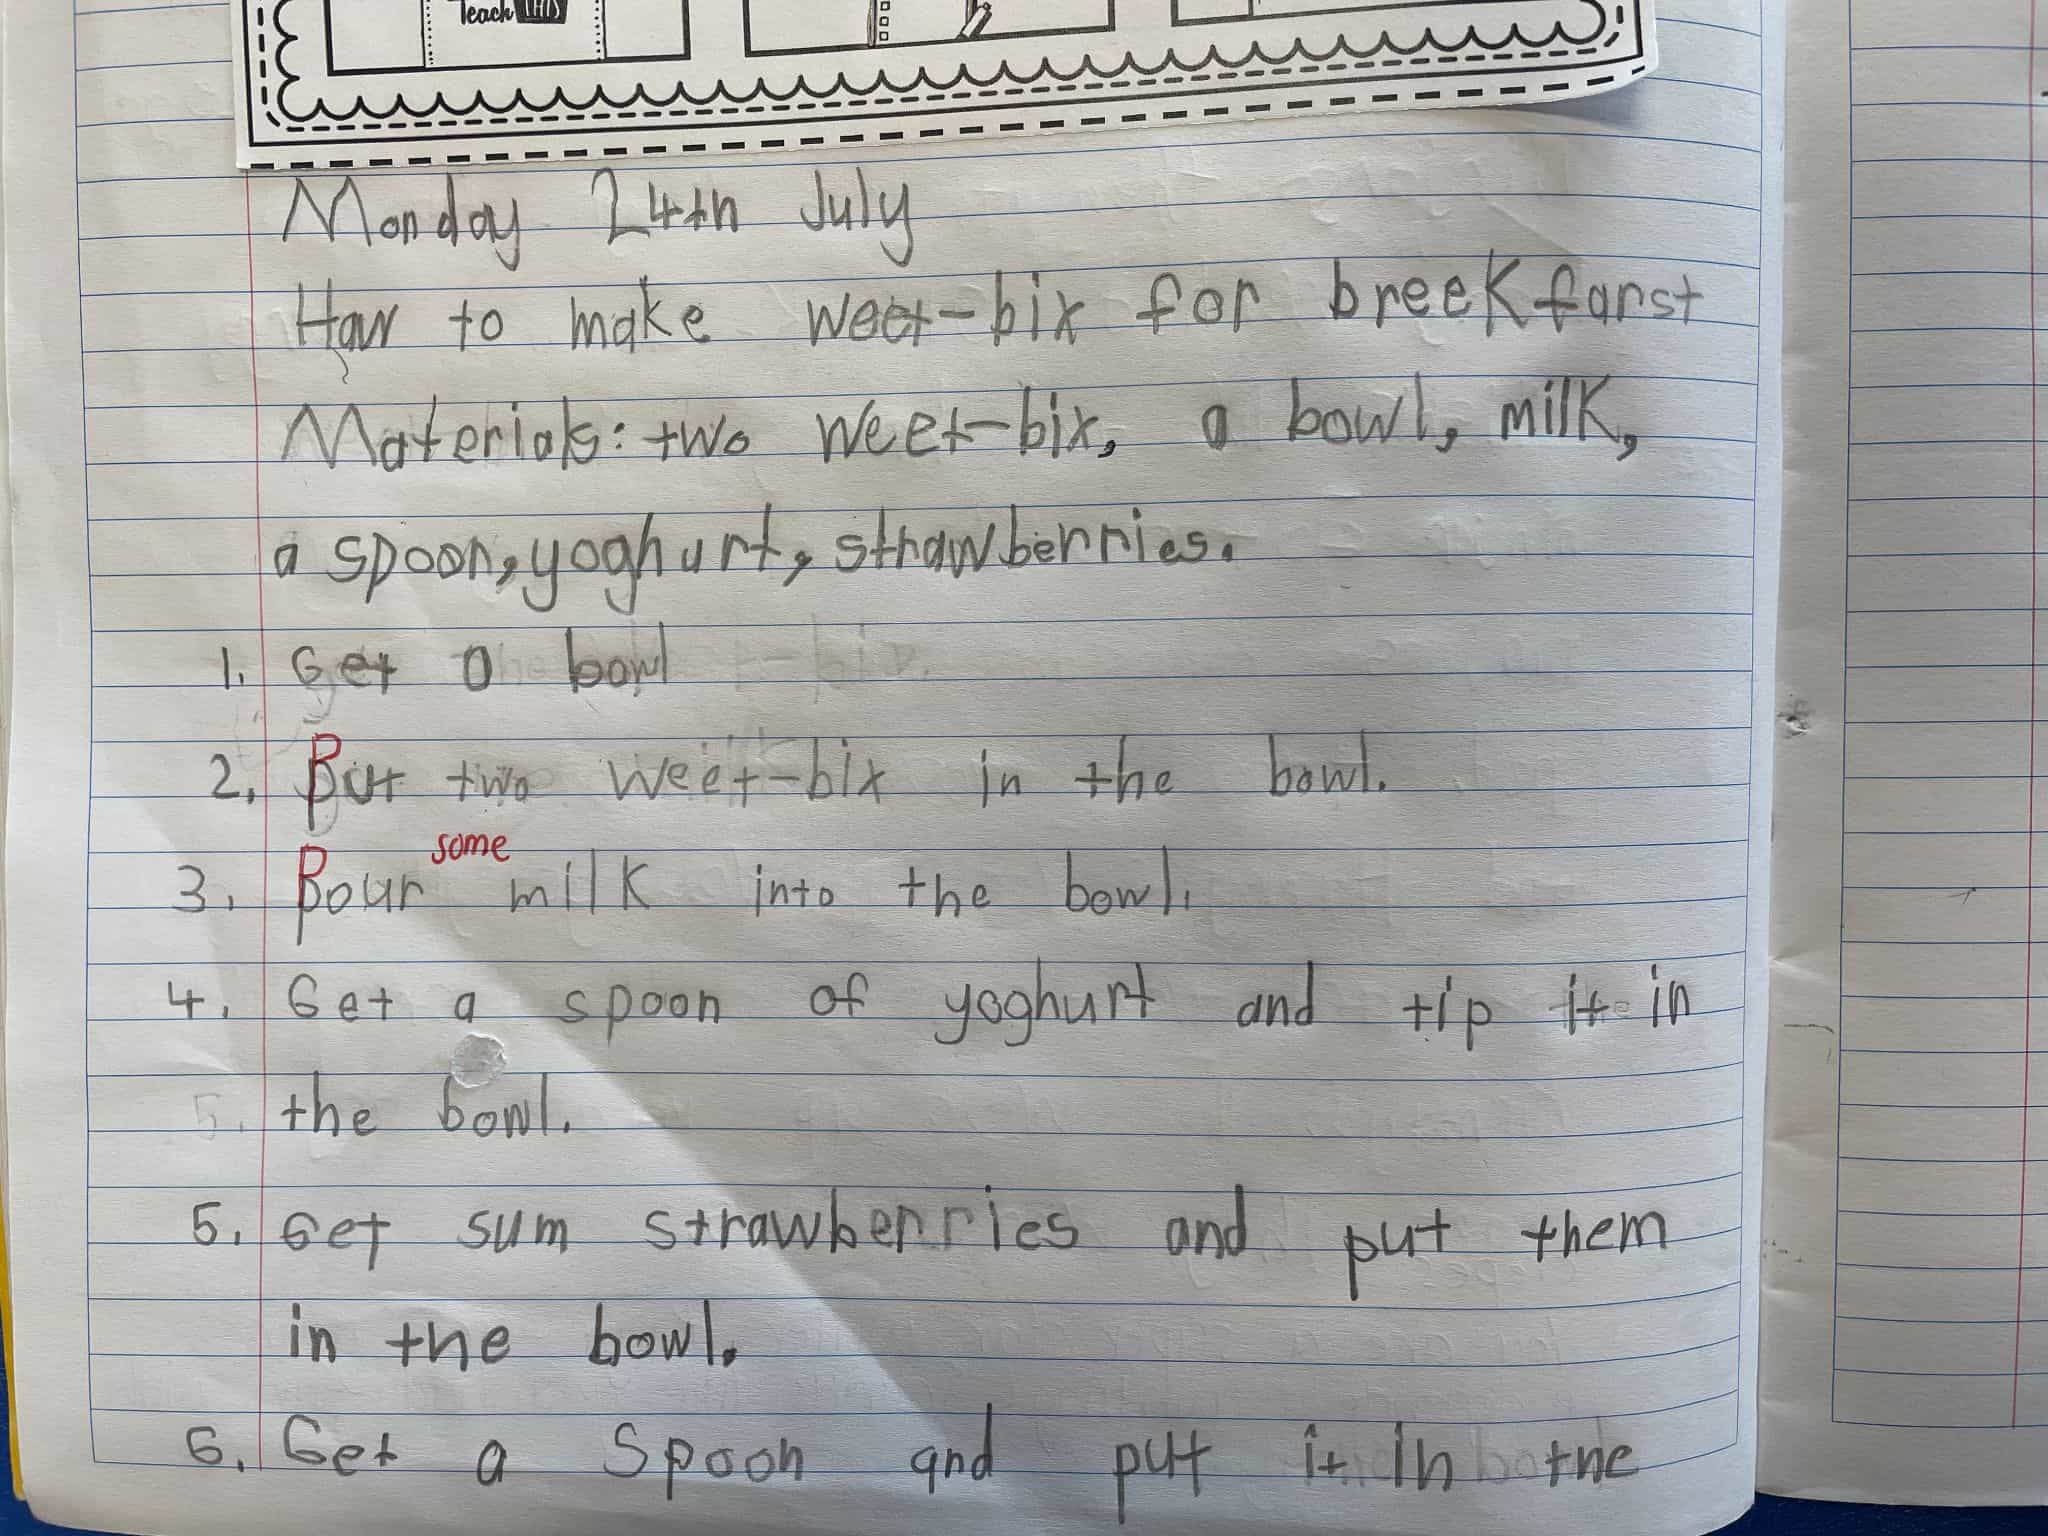 Teach THIS
Monday 24th July
How to make weet-bix for breekfarst
Materials: two weet-bix, a bowl, milk,
a spoon, yoghurt, strawberries.
1. Get a bowl
2. Put two weet-bix in the bowl.
some
3. Pour milk into the bowl.
4. Get a spoon of yoghurt and tip it in
5. the bowl.
5. Get sum strawberries and put them
in the bowl.
6. Get a spoon and put it in the